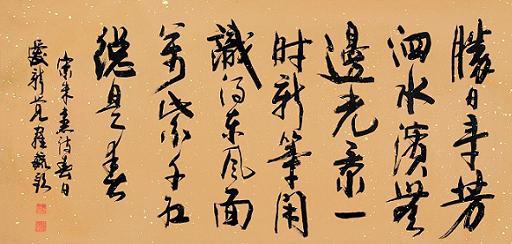 勝日尋芳
泗水濱無
邊光景一
時新等閑
識得東風面
萬紫千紅
總是春
宋朱熹詩春日